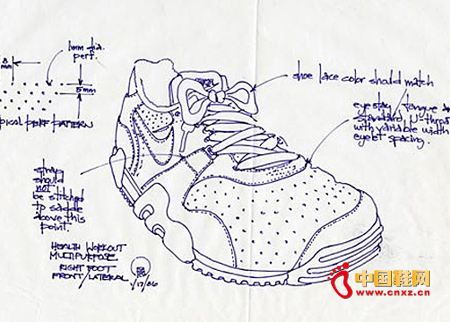 1mm dia.
perf.
5mm
PICAL PERF PATTERN
shoe lace color should match
eyestay, tongue
standard U throat
with variable width
eyelet spacing.
strap
should
not
be stitched
to saddle
above this
point.
HEALTH WORKOUT
MULTIPURPOSE
RIGHT FOOT
FRONT/LATERAL
中国鞋网
www.cnxz.cn